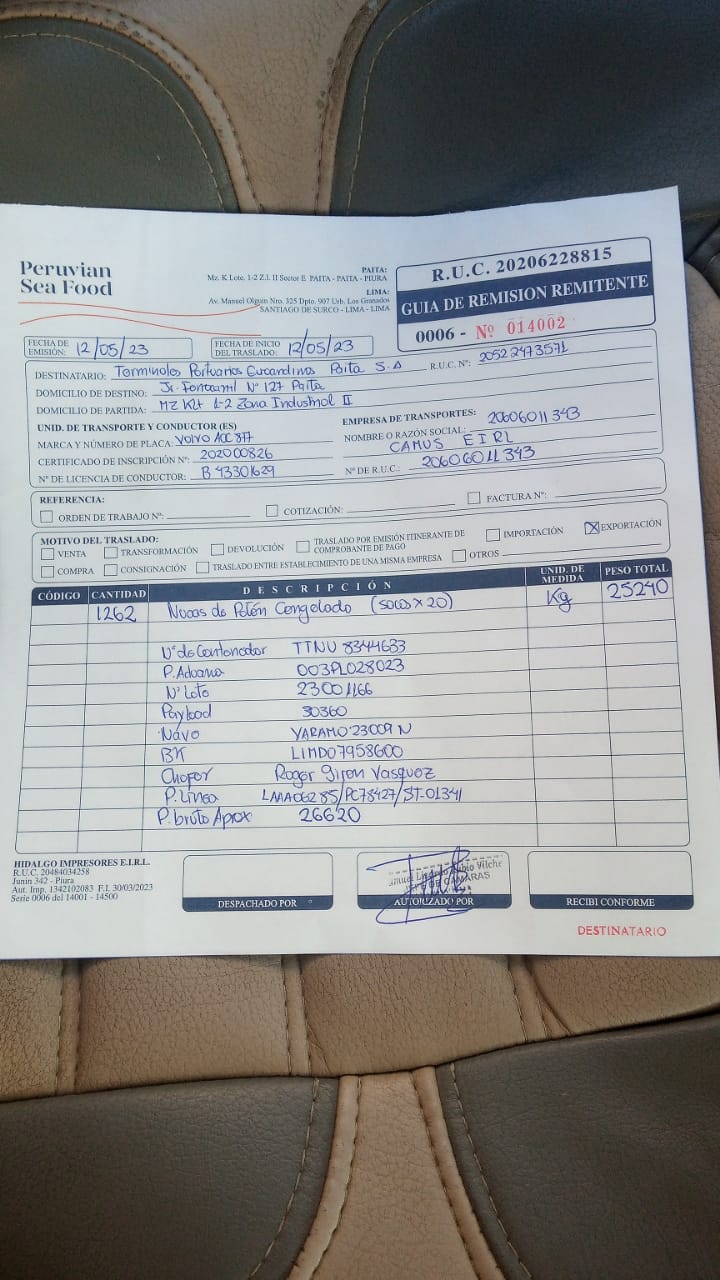 Peruvian
Sea Food
PAITA:
Mz. K Lote. 1-2 Z.I. II Sector E PAITA - PAITA - PIURA
LIMA:
Av. Manuel Olguin Nro. 325 Dpto. 907 Urb. Los Granados
SANTIAGO DE SURCO - LIMA - LIMA
R.U.C. 20206228815
GUIA DE REMISION REMITENTE
0006 - Nº 014002
FECHA DE EMISIÓN: 12/05/23
FECHA DE INICIO DEL TRASLADO: 12/05/23
DESTINATARIO: Terminales Portuarios Euroandinos Paita S.A R.U.C. Nº: 20522473571
DOMICILIO DE DESTINO: Jr. Ferrocarril Nº 127 Paita
DOMICILIO DE PARTIDA: MZ K Lt 1-2 Zona Industrial II
UNID. DE TRANSPORTE Y CONDUCTOR (ES)
MARCA Y NÚMERO DE PLACA: VOLVO 817
CERTIFICADO DE INSCRIPCIÓN Nº: 202000826
Nº DE LICENCIA DE CONDUCTOR: B 43301629
EMPRESA DE TRANSPORTES: 20606011343
NOMBRE O RAZÓN SOCIAL: CAMUS EIRL
Nº DE R.U.C.: 20606011343
REFERENCIA:
ORDEN DE TRABAJO Nº: COTIZACIÓN: FACTURA Nº:
MOTIVO DEL TRASLADO:
VENTA TRANSFORMACIÓN DEVOLUCIÓN TRASLADO POR EMISIÓN ITINERANTE DE COMPROBANTE DE PAGO IMPORTACIÓN X EXPORTACIÓN
COMPRA CONSIGNACIÓN TRASLADO ENTRE ESTABLECIMIENTO DE UNA MISMA EMPRESA OTROS
CÓDIGO CANTIDAD DESCRIPCIÓN UNID. DE MEDIDA PESO TOTAL
1262 Nucas de Potón Congelado (sacos x 20) Kg 25240
Nº de Contenedor TTNU 8344633
P. Aduana 003PL028023
Nº Lote 23001166
Payload 30360
Nave YARAMO 23009 N
BK LIMD07958600
Chofer Roger Giron Vasquez
P. Linea LAAA06285/PC78427/ST-01341
P. bruto Aprox 26620
HIDALGO IMPRESORES E.I.R.L.
R.U.C. 20484034258
Junin 342 - Piura
Aut. Imp. 1342102083 F.I. 30/03/2023
Serie 0006 del 14001 - 14500
DESPACHADO POR
JEFE DE CAMARAS
AUTORIZADO POR
RECIBI CONFORME
DESTINATARIO